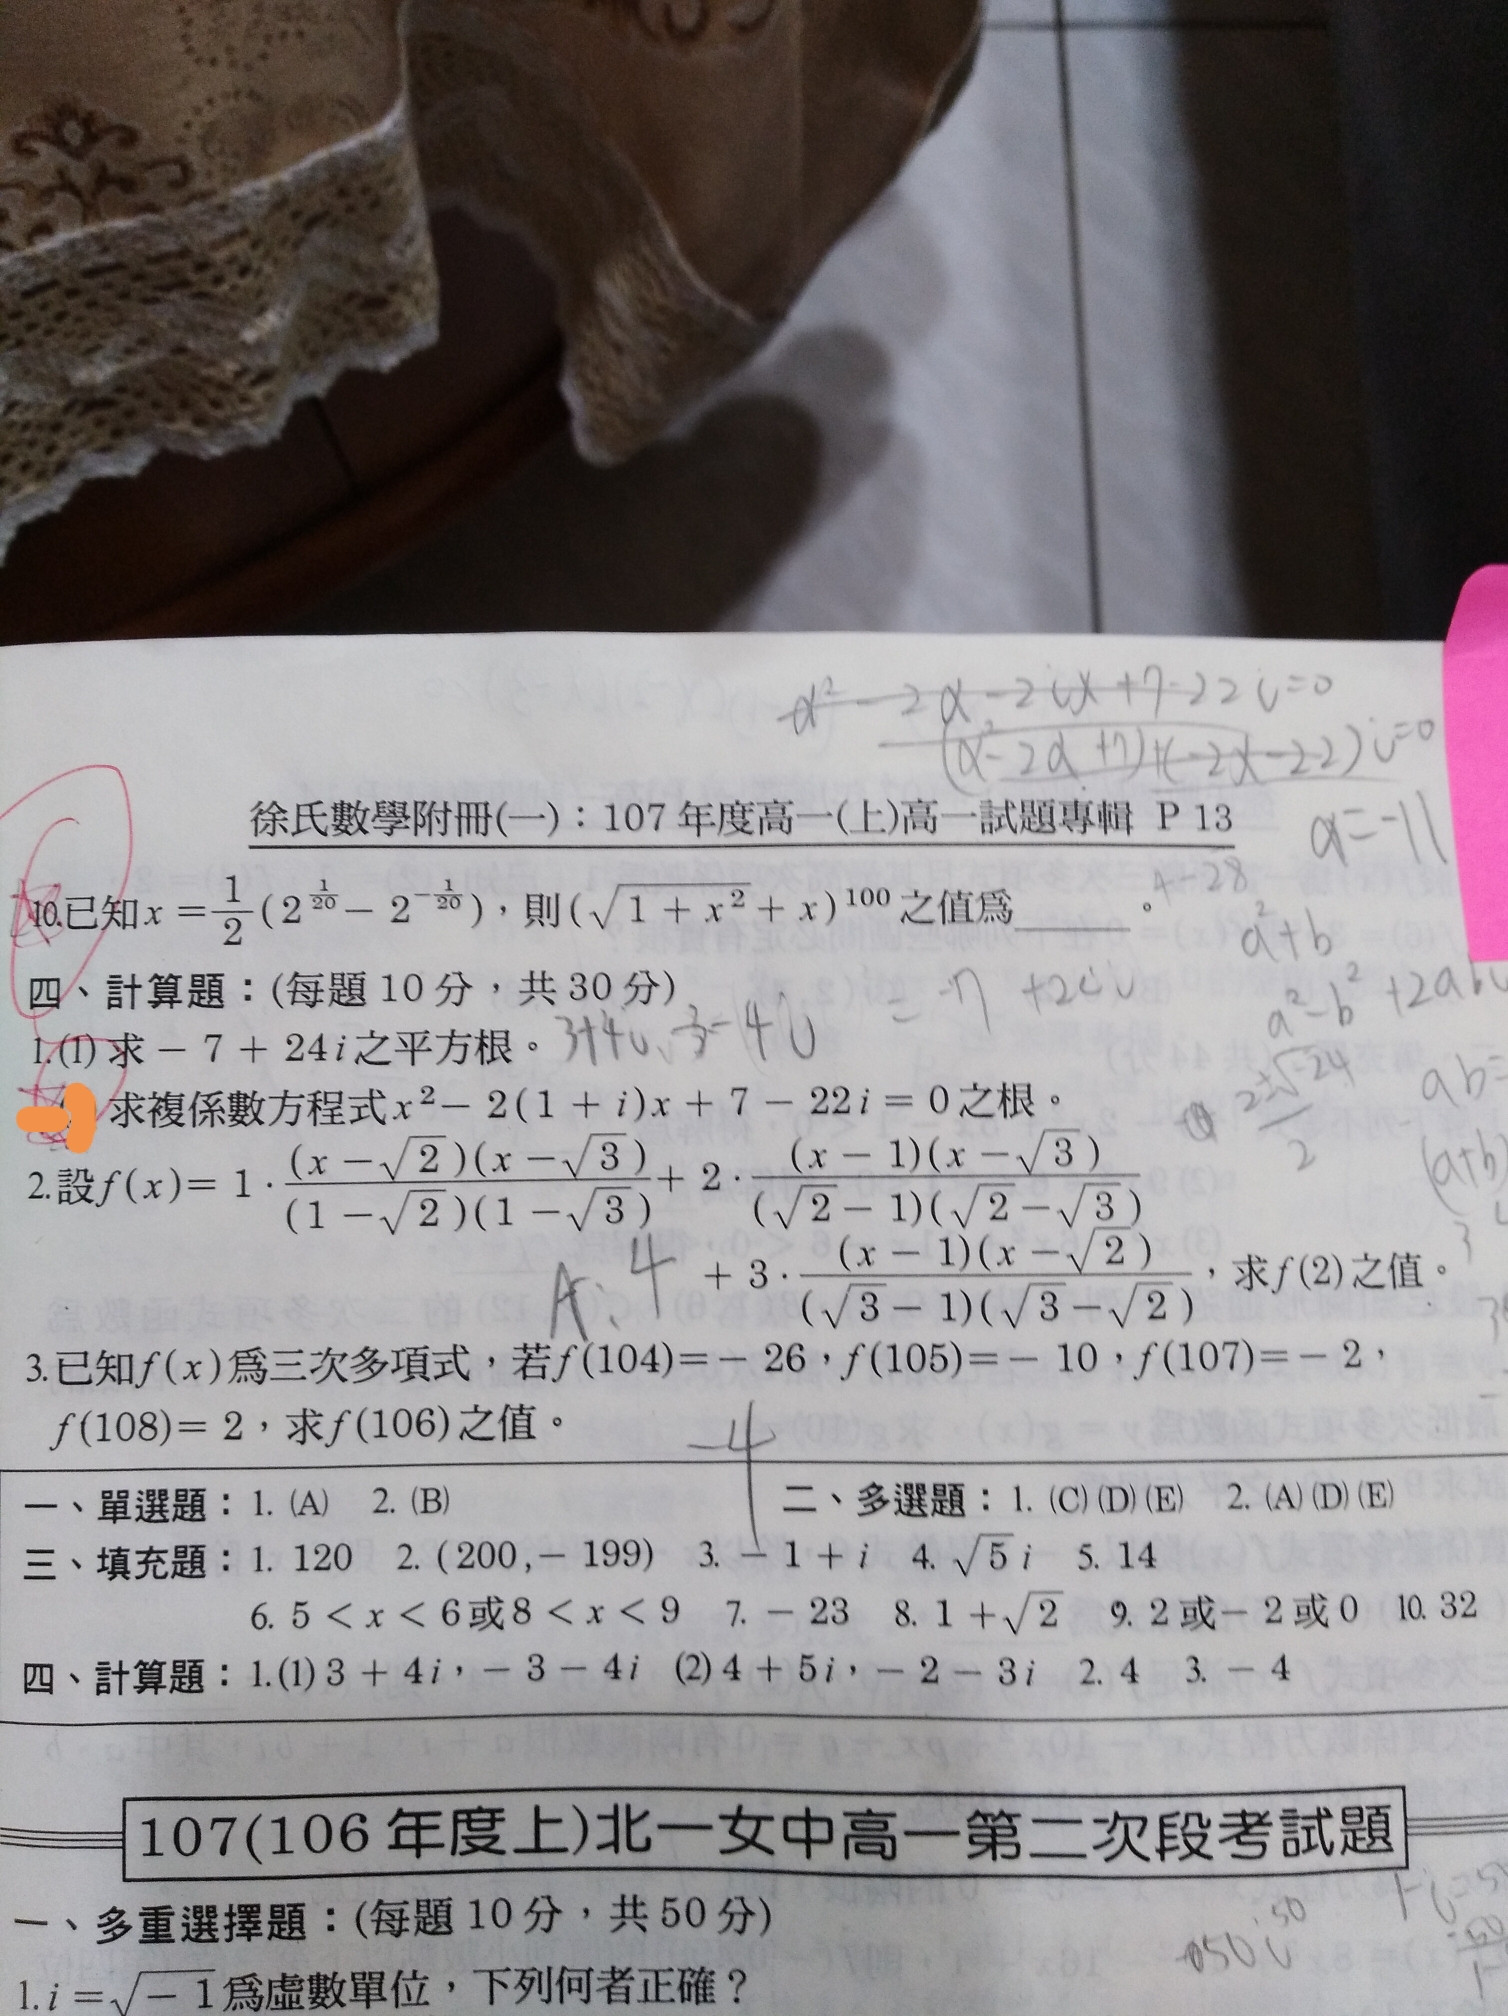 x² - 2x - 2ix + 7 - 22i = 0
(x² - 2x + 7) + (-2x - 22)i = 0
x = -11
徐氏數學附冊(一)：107年度高一(上)高一試題專輯 P 13
4-28
10.已知x＝1/2(2^(1/20)－2^(-1/20))，則(√(1＋x²)＋x)^100之值爲______。
a²+b
四、計算題：(每題10分，共30分)
= -7 + 24i
a²-b²+2abi
1.(1)求－7＋24i之平方根。 3+4i、-3-4i
2±√-24 / 2
ab=
求複係數方程式x²－2(1＋i)x＋7－22i＝0之根。
(a+b)
2.設f(x)＝1·(x－√2)(x－√3)/(1－√2)(1－√3)＋2·(x－1)(x－√3)/(√2－1)(√2－√3)
A:4
＋3·(x－1)(x－√2)/(√3－1)(√3－√2)，求f(2)之值。
3.已知f(x)爲三次多項式，若f(104)＝－26，f(105)＝－10，f(107)＝－2，
f(108)＝2，求f(106)之值。 -4
一、單選題：1. (A) 2. (B) 二、多選題：1. (C)(D)(E) 2. (A)(D)(E)
三、填充題：1. 120 2. (200,－199) 3. －1＋i 4. √5i 5. 14
6. 5＜x＜6或8＜x＜9 7. －23 8. 1＋√2 9. 2或－2或0 10. 32
四、計算題：1.(1) 3＋4i，－3－4i (2) 4＋5i，－2－3i 2. 4 3. －4
107(106年度上)北一女中高一第二次段考試題
一、多重選擇題：(每題10分，共50分)
1. i＝√－1爲虛數單位，下列何者正確？